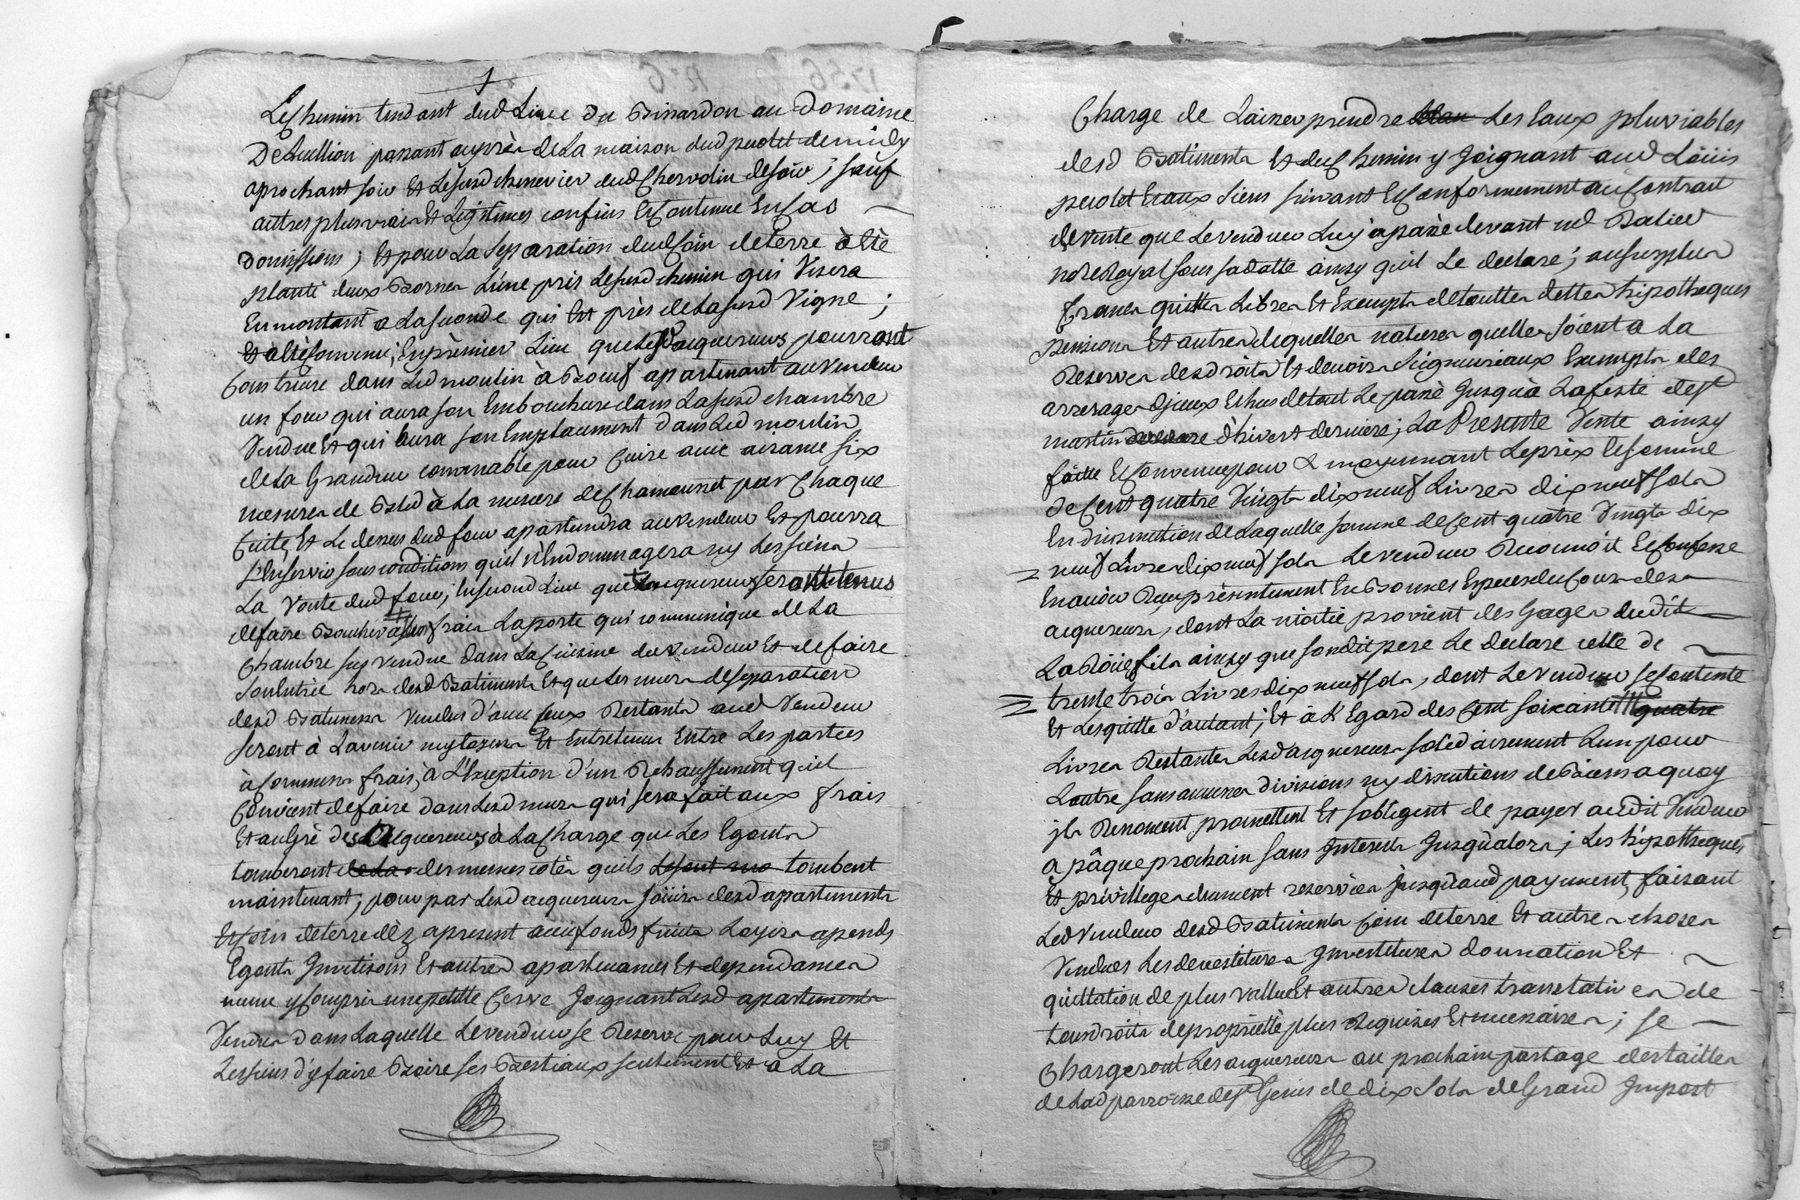 Le chemin tendant dud Lieu du Tirardon au Domaine
De passant auprès de La maison dud perotet de midy
aprochant soir Et Le susd chenevier dud Chervolin de soir; sauf
autres plus vrais Et Legitimes confins Et Contenue En Cas
Domissions; Et pour La Separation dud Coin de terre à Eté
planté deux Bornes L'une près Le susd chemin qui Visera
En montant a La seconde qui Est près de La susd Vigne;
Et a Eté Convenu; En premier Lieu que Les acquereurs pourront
Construire dans Led moulin à Bœuf apartenant au Vendeur
un four qui aura son Embouchure dans La susd chambre
Vendue Et qui aura son Emplacement dans Led moulin
de La Grandeur convenable pour Cuire avec aisance six
mesures de Bled à La mesure de Chamousset par Chaque
Cuite, Et Le dessus dud four apartiendra au vendeur Et pourra
s'En servir sous conditions qu'il n'Endommagera ny Les siens
La Voute dud four; En second Lieu que Les acquereurs seront tenus
de faire Boucher à Leurs frais La porte qui communique de La
Chambre susvendue dans La Cuisine du vendeur Et de faire
Son Entrée hors desd Batiments Et que Les murs de separation
desd Batimens Vendus d'avec ceux Restants aud Vendeur
seront à Lavenir mytoyens Et Entretenus Entre Les parties
à Communs frais, à L'Exception d'un Rehaussement qu'il
Convient de faire dans Lesd murs qui sera fait aux frais
Et au gré des acquereurs, à La Charge que Les Egouts
tomberont des memes cotés quils tombent
maintenant; pour par Lesd acquereurs Joüir desd apartements
Et Coin de terre dèz apresent avec fonds fruits Loyers apends
Egouts Invetisons Et autres apartenances Et dependances
meme y Compris une petitte Cerve Joignant Lesd apartements
Vendus dans Laquelle Le vendeur se Reserve pour Luy Et
Les siens d'y faire Boire ses Bestiaux seulement Et a La
Charge de Laisser prendre Les Eaux pluviables
desd Batiments Et du Chemin y Joignant aud Loüis
perotet Et aux siens suivant Et Conformement au Contrait
de vente que Le vendeur Luy a passé devant
no.re Royal sous sa datte ainsy quil Le declare; au surplus
francs quittes Libres Et Exempts de touttes dettes hipotheques
pensions Et autres de quelles natures quelles soient a La
Reserve desd droits Et devoirs Seigneuriaux Exempts des
arrerages d'jceux Echus de tout Le passé Jusqu'à La feste de St
martin d'hivert derniere; La Presente Vente ainsy
faitte Et Convenue pour & moyennant Le prix Et somme
de Cent quatre Vingts dix neuf Livres dix neuf sols
En diminution de Laquelle somme de Cent quatre Vingts dix
neuf Livres dix neuf sols Le vendeur Reconnoit Et Confesse
En avoir Reçu présentement En Bonnes Especes du Cours desd
acquereurs, dont La moitié provient des Gages dudit
La Roüe fils ainsy que sondit pere Le declare celle de
trente trois Livres dix neuf sols, dont Le Vendeur se Contente
Et Les quitte d'autant; Et à L'Egard des Cent soixante
Livres Restantes Lesd acquereurs solidairement L'un pour
L'autre sans aucunes divisions ny discutions de Biens a quoy
jls Renoncent promettent Et s'obligent de payer audit Vendeur
a pâque prochain sans Interests Jusqu'alors; Les hipotheques
Et privilleges dument reservées Jusqu'aud payement, faisant
Led Vendeur desd Batiments Coin de terre Et autres choses
Vendues Les devestitures Investitures donnation Et
quittation de plus vallue Et autres clauses translatives de
tous droits de proprieté plus Requises Et necessaires; se
Chargeront Les acquereurs au prochain partage des tailles
de Lad parroisse de St Genis de dix Sols de Grand Import